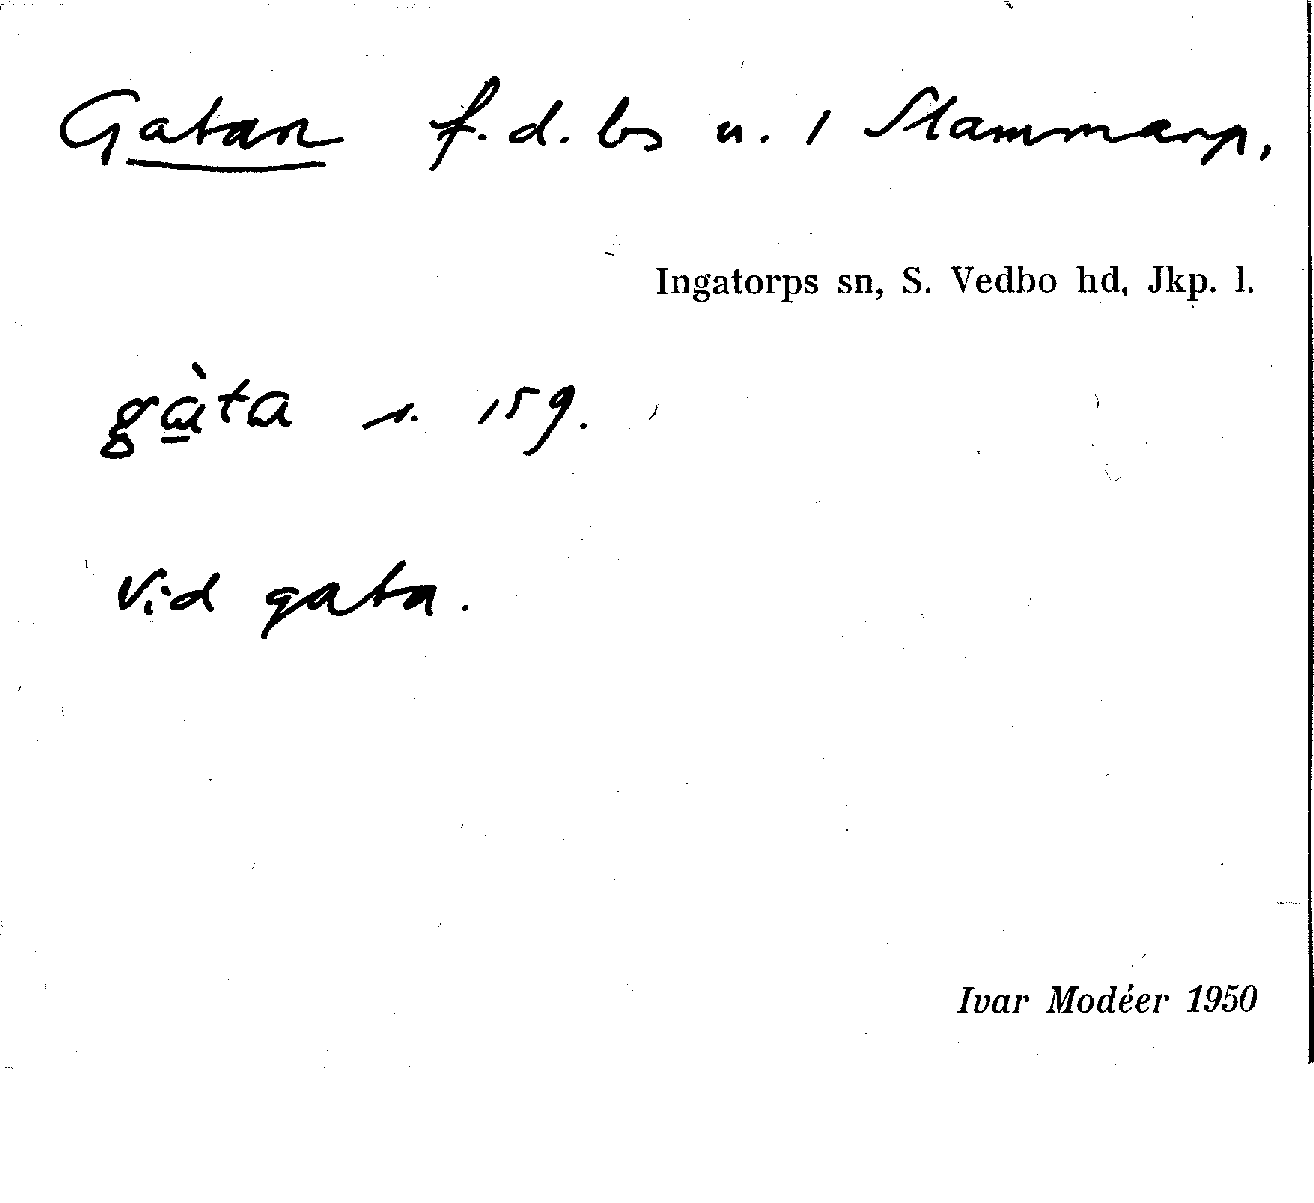 Gatan f.d. bs u. 1 Slammarp,
Ingatorps sn, S. Vedbo hd, Jkp. l.
gàta s. 159.
Vid gata.
Ivar Modéer 1950